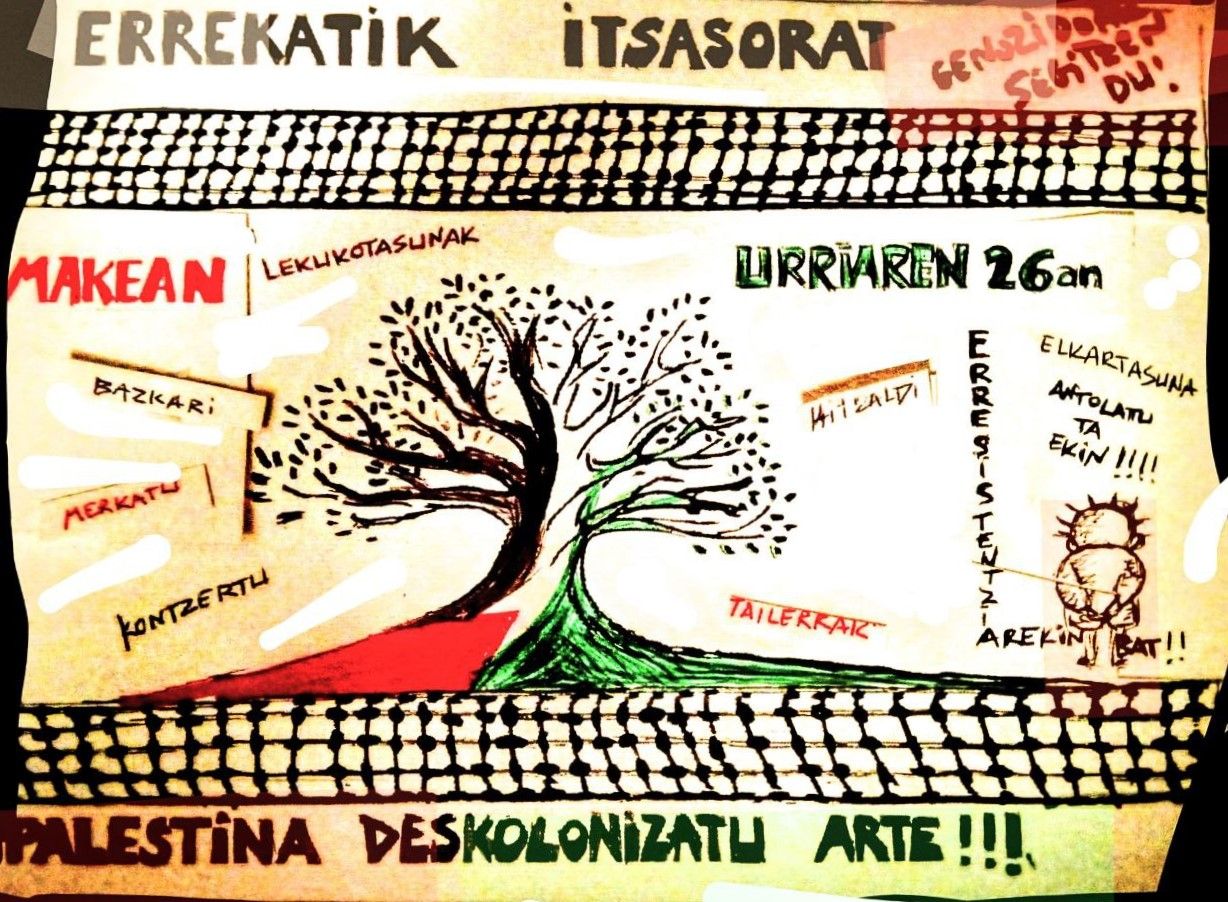 ERREKATIK ITSASORAT
GENOZIDOAK
SEGITZEN
DU!
MAKEAN
LEKUKOTASUNAK
URRIAREN 26an
BAZKARI
HITZALDI
MERKATU
KONTZERTU
TAILERRAK
ERRESISTENTZIAREKIN BAT!!
ELKARTASUNA
ANTOLATU
TA
EKIN!!!!
PALESTINA DESKOLONIZATU ARTE!!!